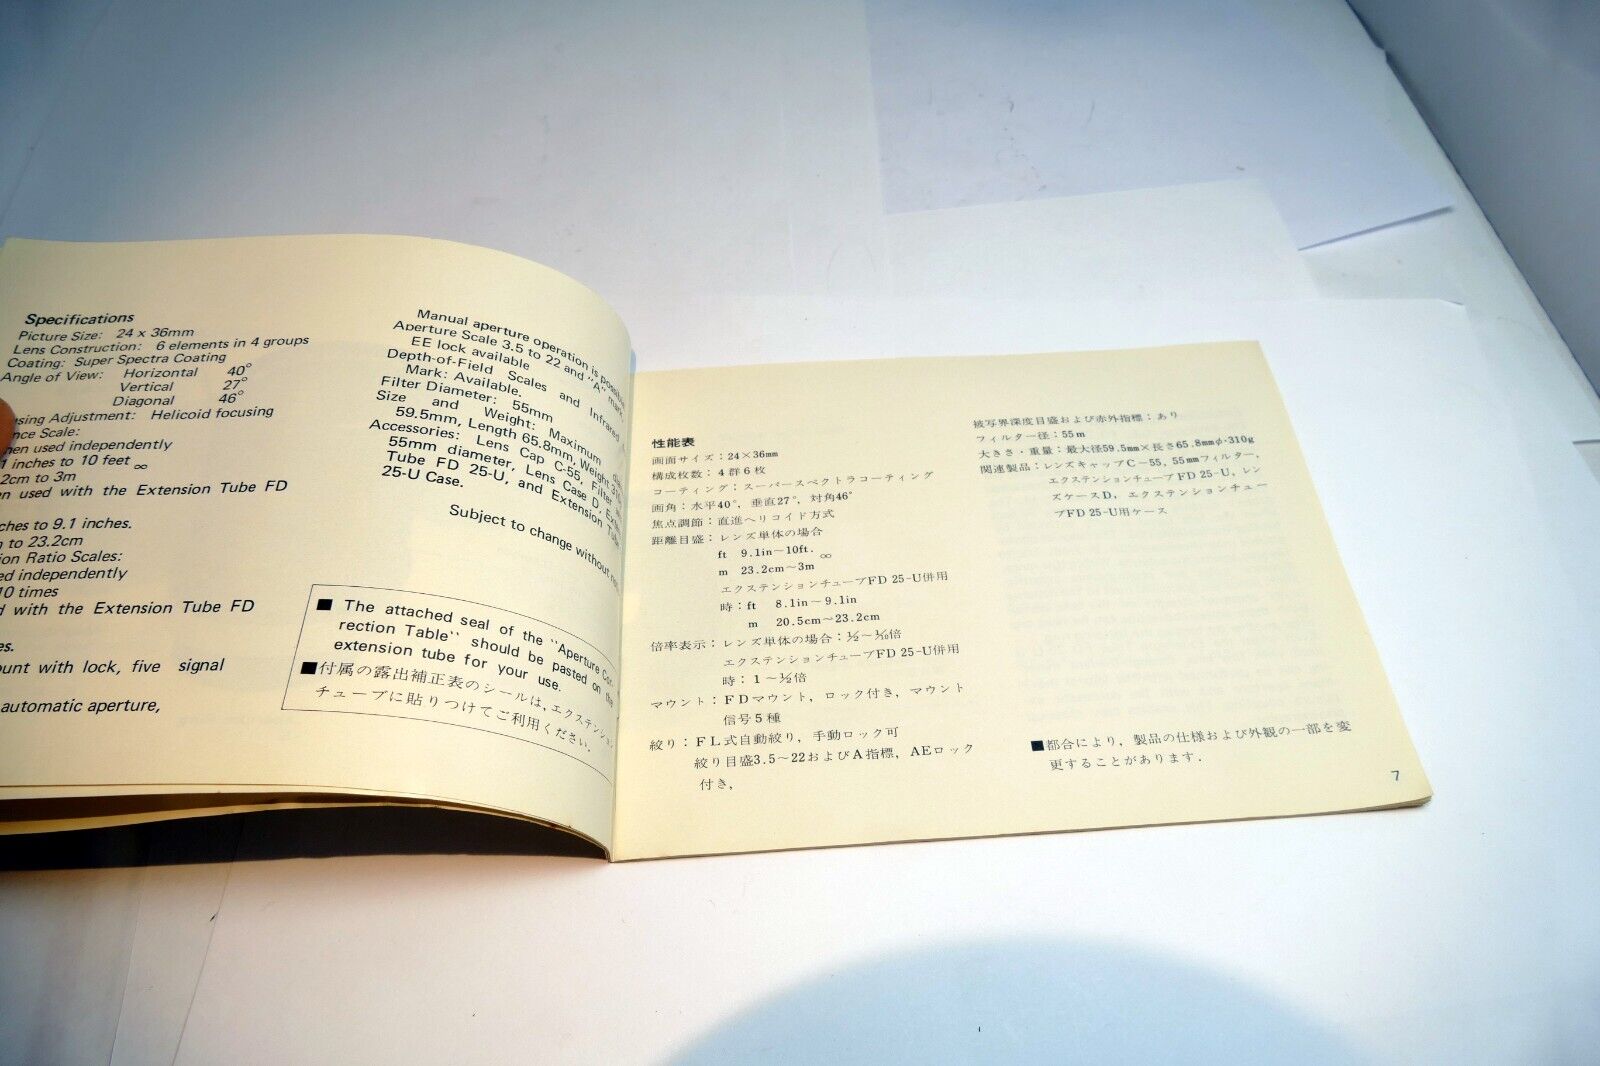 Specifications
Picture Size: 24 x 36mm
Lens Construction: 6 elements in 4 groups
Coating: Super Spectra Coating
Angle of View: Horizontal 40°
Vertical 27°
Diagonal 46°
Adjustment: Helicoid focusing
Scale:
used independently
inches to 10 feet ∞
2cm to 3m
used with the Extension Tube FD
to 9.1 inches.
to 23.2cm
Ratio Scales:
independently
10 times
with the Extension Tube FD
with lock, five signal
automatic aperture,
Manual aperture operation is possible
Aperture Scale 3.5 to 22 and "A" mark,
EE lock available
Depth-of-Field Scales and Infrared
Mark: Available.
Filter Diameter: 55mm
Size and Weight: Maximum
59.5mm, Length 65.8mm, Weight
Accessories: Lens Cap C-55, Filter
55mm diameter, Lens Case D,
Tube FD 25-U, and Extension Tube
25-U Case.
Subject to change without
■ The attached seal of the "Aperture Cor-
rection Table" should be pasted on the
extension tube for your use.
■付属の露出補正表のシールは,エクステンション
チューブに貼りつけてご利用ください.
性能表
画面サイズ:24×36㎜
構成枚数:4群6枚
コーティング:スーパースペクトラコーティング
画角:水平40°, 垂直27°, 対角46°
焦点調節:直進ヘリコイド方式
距離目盛:レンズ単体の場合
ft 9.1in〜10ft. ∞
m 23.2cm〜3m
エクステンションチューブFD 25-U併用
時:ft 8.1in〜9.1in
m 20.5cm〜23.2cm
倍率表示:レンズ単体の場合:½〜⅒倍
エクステンションチューブFD 25-U併用
時:1〜½倍
マウント:FDマウント, ロック付き, マウント
信号5種
絞り:FL式自動絞り, 手動ロック可
絞り目盛3.5〜22およびA指標, AEロック
付き,
被写界深度目盛および赤外指標:あり
フィルター径:55m
大きさ・重量:最大径59.5㎜×長さ65.8㎜φ·310g
関連製品:レンズキャップC-55, 55㎜フィルター,
エクステンションチューブFD 25-U, レン
ズケースD, エクステンションチュー
ブFD 25-U用ケース
■都合により, 製品の仕様および外観の一部を変
更することがあります.
7